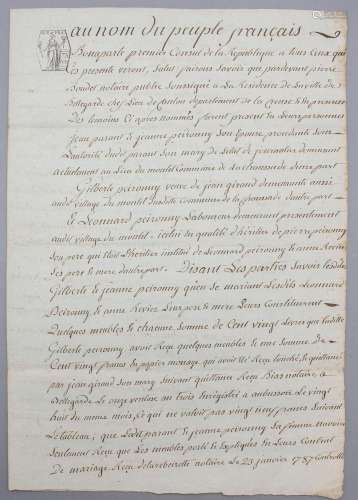 au nom du peuple français
Bonaparte premier Consul de la République a tous Ceux qui
Ces presente veront, Salut faisons Savoir que pardevant pierre
Boudet notaire public Soussigné a La Residence de
Bellegarde chef Lieu de Canton departement de la Creuse & En presence
Des temoins Cy apres Nommés, furent present En Leurs personnes
Jean parant & jeanne peironny Son Epouse, procedant Sous
L'autorité dudit parant Son mary de Letat de journalier demeurant
actuellement au Lieu du montel Commune de d'une part
Gilberte peironny veuve de jean giraud demeurante aussi
audit village du montel Susdite Commune de d'autre part
& Leonnard peironny Laboureur demeurant presentement
audit village du montel En qualité d'heritier de pierre peironny
Son pere qui Etoit L'heritier institué de Leonnard peironny & anne Revier
Ses pere & mere d'autre part. Disant Les parties Savoir Lesdites
Gilberte & jeanne peironny qu'en Se mariant Lesdits Leonnard
Peironny & anne Revier Leurs pere & mere Leurs Constituerent
Quelques meubles & chacune Somme de Cent vingt Livres que Ladite
Gilberte peironny avoit Reçu quelques meubles & une Somme de
Cent vingt francs En papier monoye qui avoit Eté Reçu touché, & quittancé
par jean giraud Son mary Suivant quittance Reçu notaire a
Bellegarde Le onze ventose an trois Enregistré a aubusson Le vingt
huit du meme mois, & qui ne valoit pas vingt neuf francs Suivant
Letableau; que Ledit parant & jeanne peironny Sa femme n'avoient
Seulement Reçu que Les meubles porté & Expliqués En Leurs Contrat
De mariage Reçu notaire Le 23 janvier 1787 Controllé